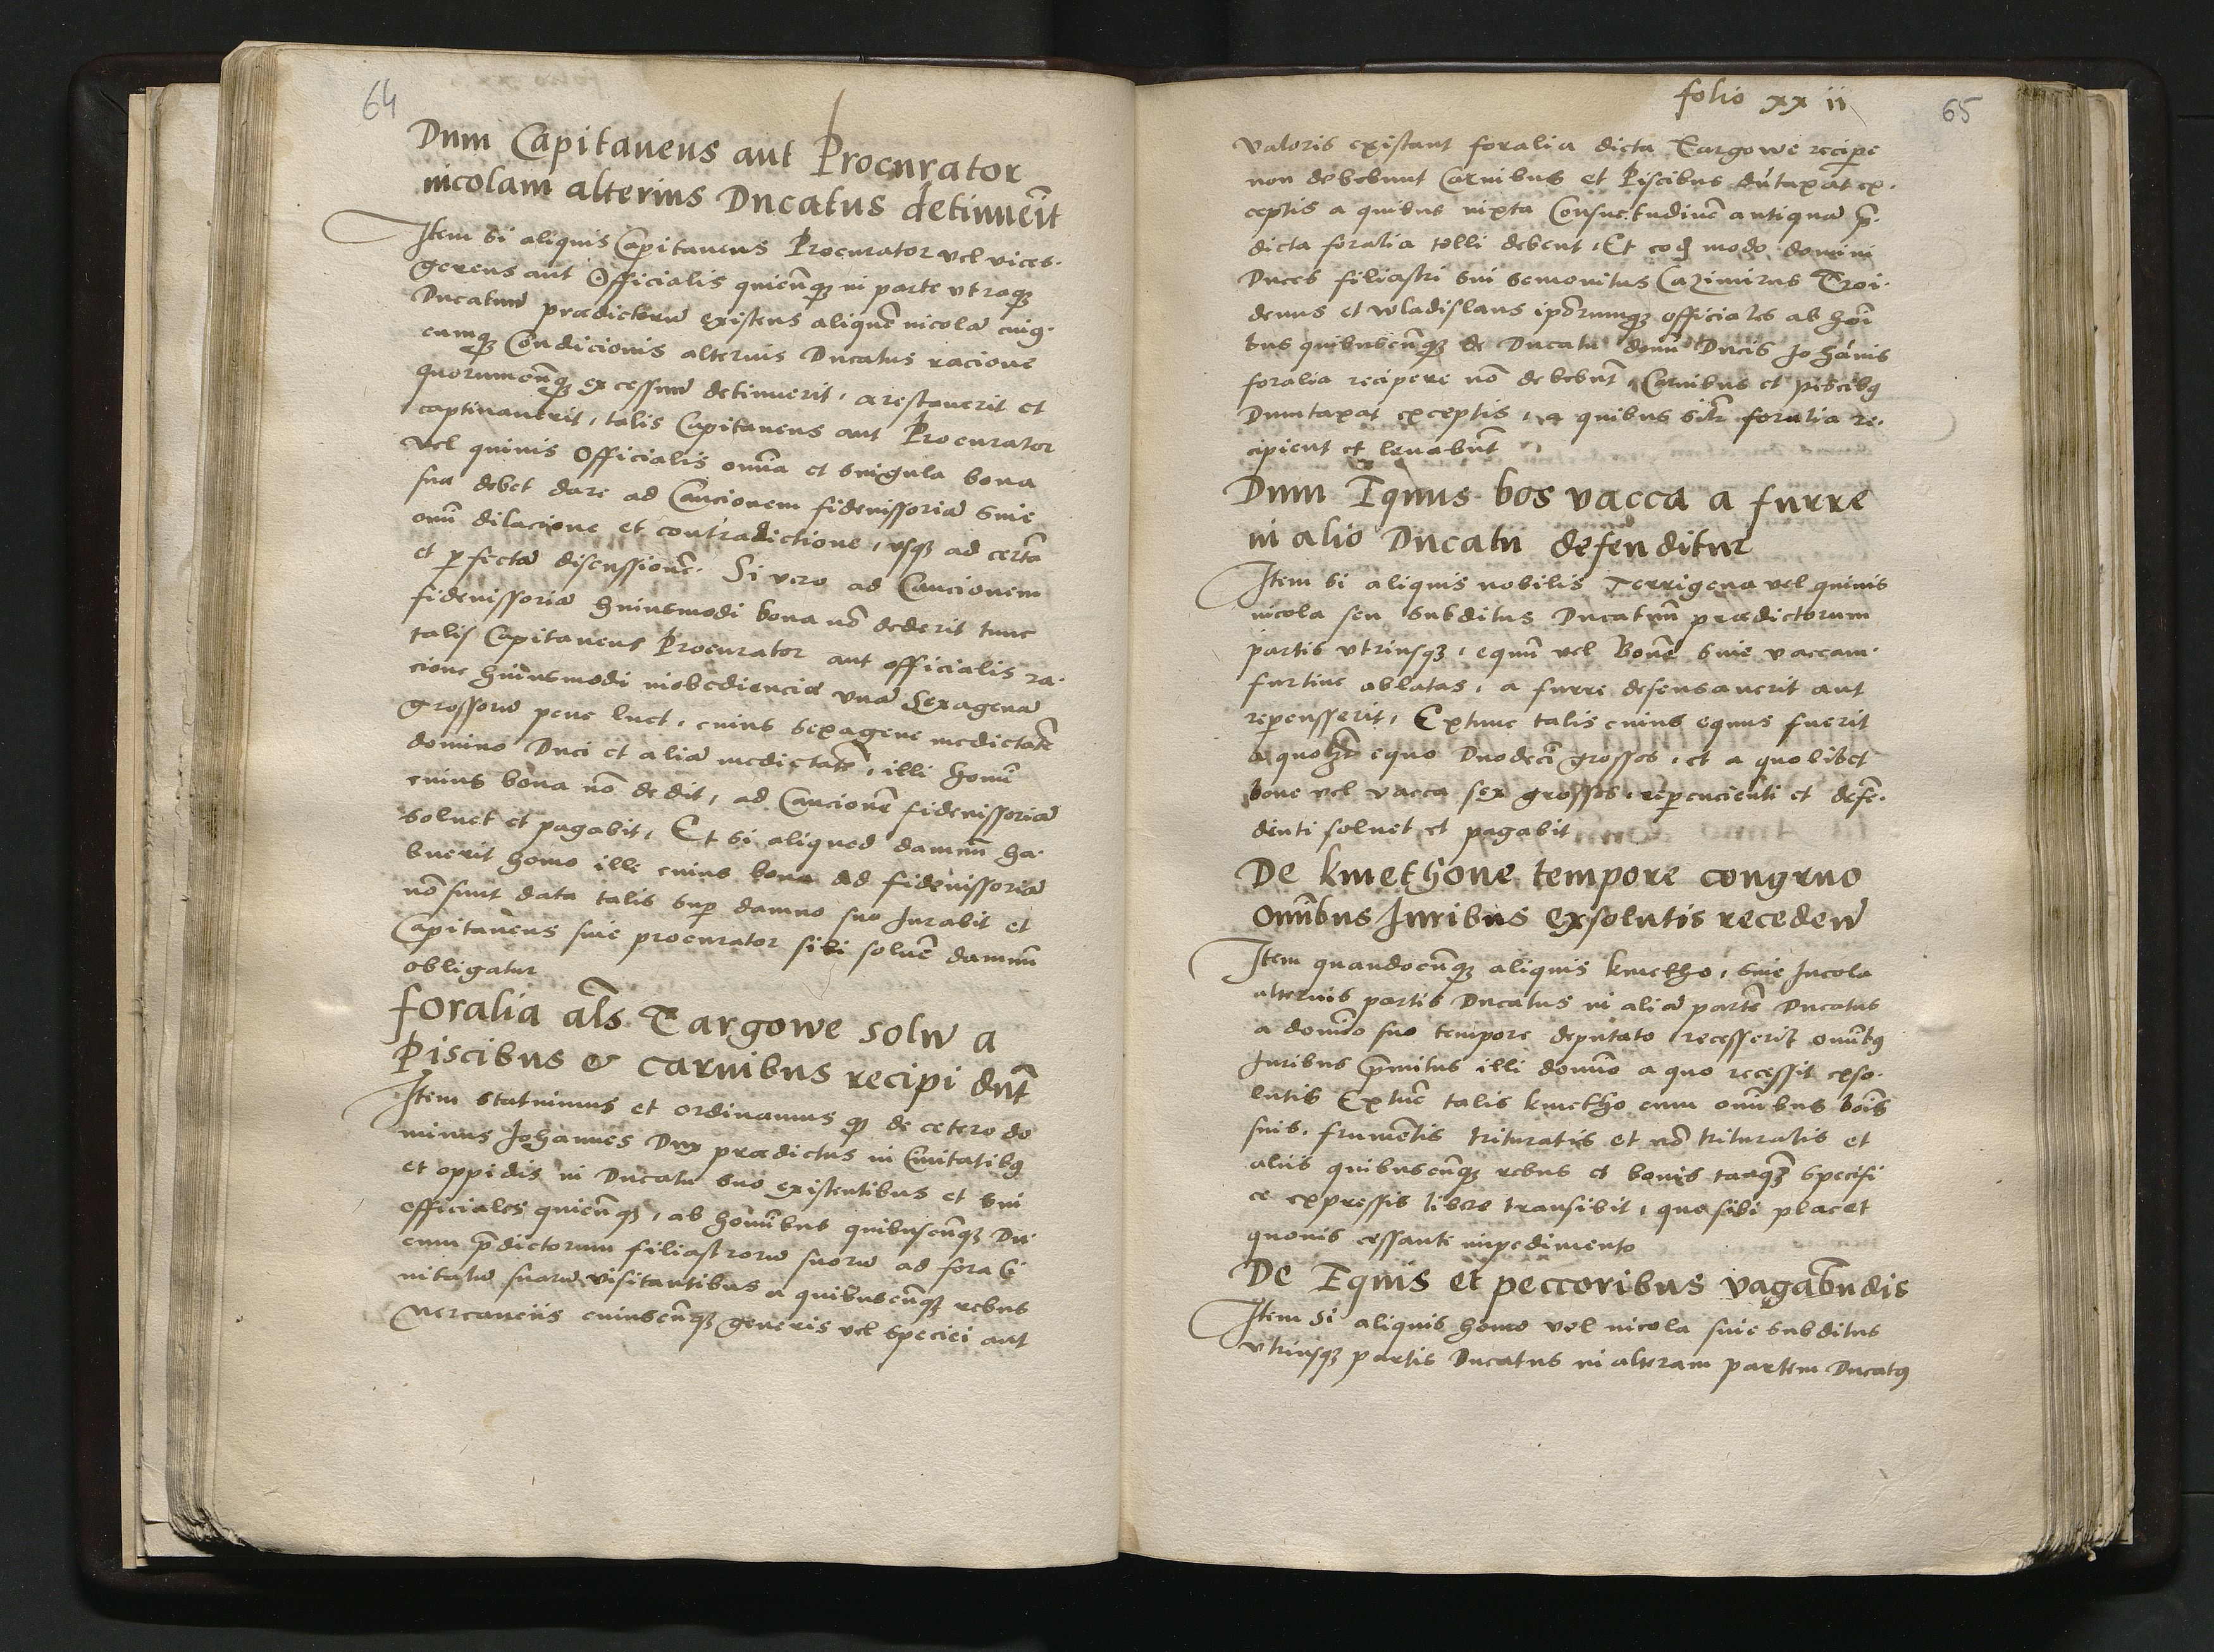 64
Dum Capitaneus aut Procurator
incolam alterius Ducatus detinueīt
Item si aliquis Capitaneus Procurator vel vices-
gerens aut Officialis quicunqȝ in parte vtraqȝ
Ducatuū prædictorū existens aliquē incolā cuius-
cumqȝ Condicionis alterius Ducatus racione
quorumcunqȝ excessuū detinuerit, arestauerit et
captiuauerit, talis Capitaneus aut Procurator
vel quiuis Officialis omīa et singula bona
sua debet dare ad Caucionem fideiussoriā siue
omī dilacione et contradictione, vsqȝ ad certā
et perfectā discussionē. Si vero ad Caucionem
fideiussoriā huiusmodi bona nō dederit tunc
talis Capitaneus Procurator aut officialis ra-
cione huiusmodi inobedienciæ vnā Sexagenā
grossorū pene luet, cuius sexagene medictatē
domino Duci et aliā medictatē, illi homī
cuius bona nō dedit, ad Caucionē fideiussoriā
soluet et pagabit, Et si aliquod damnū ha-
buerit homo ille cuius bona ad fideiussoriā
nō sunt data talis sup damno suo Jurabit et
Capitaneus siue procurator sibi soluē damnū
obligatur
foralia al̄s Targowe solū a
Piscibus & carnibus recipi dn̄t
Item statuimus et ordinamus qȝ de cetero do
minus Johannes Dux prædictus in Ciuitatibȝ
et oppidis in Ducatu suo existentibus et sui
officiales quicunqȝ, ab homībus quibuscunqȝ Du-
cum p̄dictorum filiastrorū suorū ad fora Ci-
uitatū suarū visitantibus a quibuscunqȝ rebus
Mercanciis cuiuscunqȝ generis vel speciei aut
folio xx ii
65
valoris existant foralia dicta Targowe recipe
non debebunt Carnibus et Piscibus dūtaxat ex-
ceptis a quibus iuxta Consuetudinē antiquā p̄-
dicta foralia tolli debent, Et eoḏ modo domini
Duces filiastri sui semouitus Cazimirus Troi-
denus et wladislaus ipōrumqȝ officiales ab hoī
bus quibuscunqȝ de Ducatu domī Ducis Johānis
foralia recipere nō debebūt, Carnibus et piscibȝ
Dumtaxat exceptis, a quibus silr foralia re-
cipient et leuabūt
Dum Equus bos vacca a furre
in alio Ducatu defenditur
Item si aliquis nobilis Terrigena vel quiuis
incola seu subditus Ducatuū prædictorum
partis vtriusqȝ, equū vel Bouē siue vaccam
furtiue ablatas, a furre defensauerit aut
repensserit, Extunc talis cuius equus fuerit
a quolt̄ equo Duodecī grossos, et a quolibet
boue vel vacca sex grossos, repencienti et defē-
denti soluet et pagabit
De kmethone tempore congruo
omībus Juribus exsolutis recedeū
Item quandocunqȝ aliquis kmetho, siue Incola
alteruis partis Ducatus in aliā partē Ducatus
a domīo suo tempore deputato recesserit omībȝ
Juribus p̄mitus illi domīo a quo recessit exso-
lutis Extūc talis kmetho cum omībus boīs
suis, frumētis trituratis et nō trituratis et
aliis quibuscunqȝ rebus et bonis tanqȝ specifi
ce expressis libere transibit, quo sibi placet
quouis cessante impedimento
De Equis et peccoribus vagabūdis
Item Si aliquis homo vel incola siue subditus
vtriusqȝ partis Ducatus in alteram partem Ducatȝ